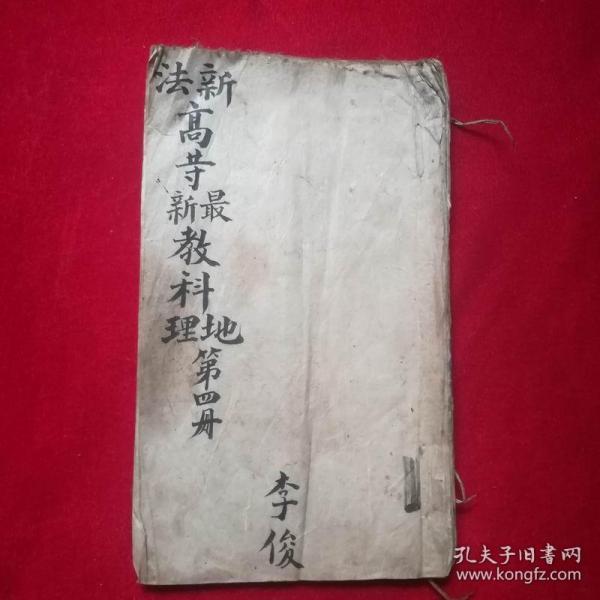 新法高等最新教科地理第四册
李俊
孔夫子旧书网
www.kongfz.com